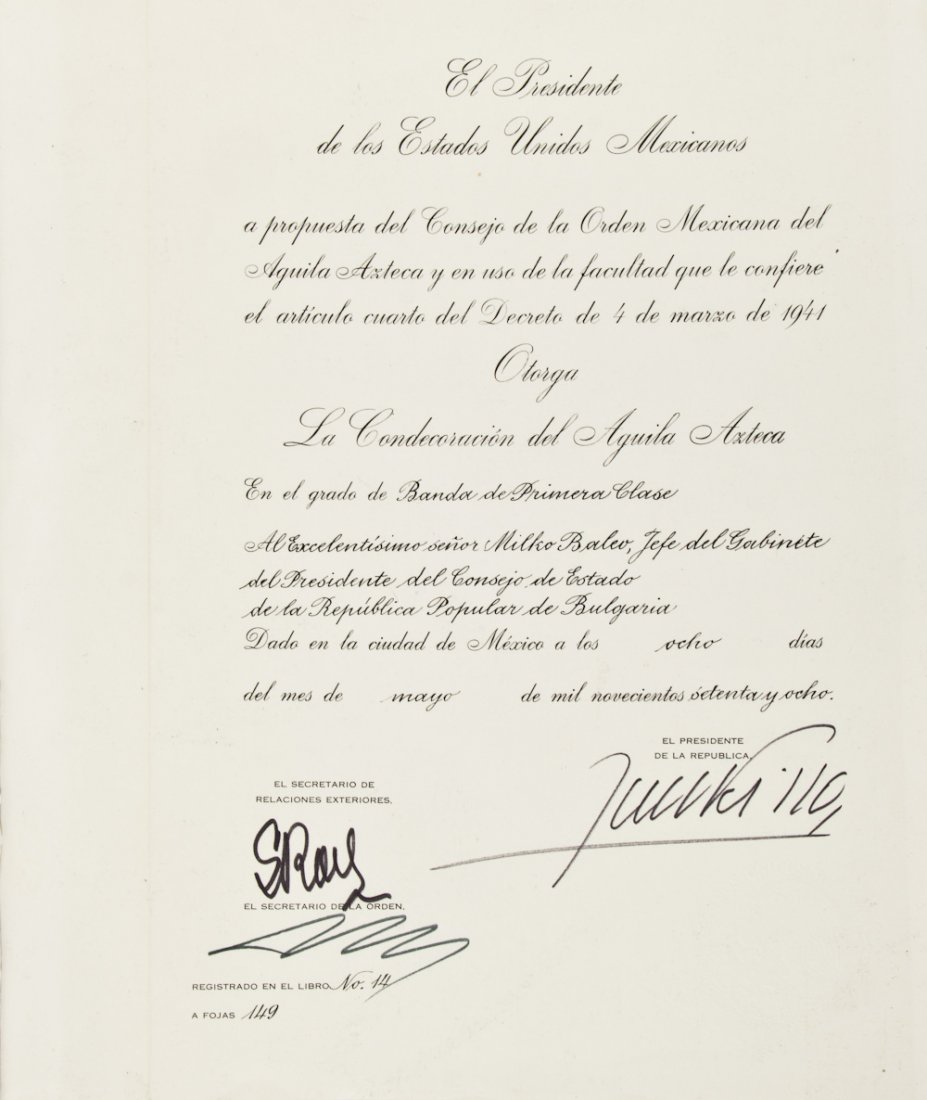 El Presidente
de los Estados Unidos Mexicanos
a propuesta del Consejo de la Orden Mexicana del
Aguila Azteca y en uso de la facultad que le confiere
el artículo cuarto del Decreto de 4 de marzo de 1941
Otorga
La Condecoración del Aguila Azteca
En el grado de Banda de Primera Clase
Al Excelentísimo señor Milko Balev, Jefe del Gabinete
del Presidente del Consejo de Estado
de la República Popular de Bulgaria
Dado en la ciudad de México a los ocho días
del mes de mayo de mil novecientos setenta y ocho.
EL PRESIDENTE
DE LA REPUBLICA,
EL SECRETARIO DE
RELACIONES EXTERIORES,
SRoel
EL SECRETARIO DE LA ORDEN,
REGISTRADO EN EL LIBRO No. 14
A FOJAS 149